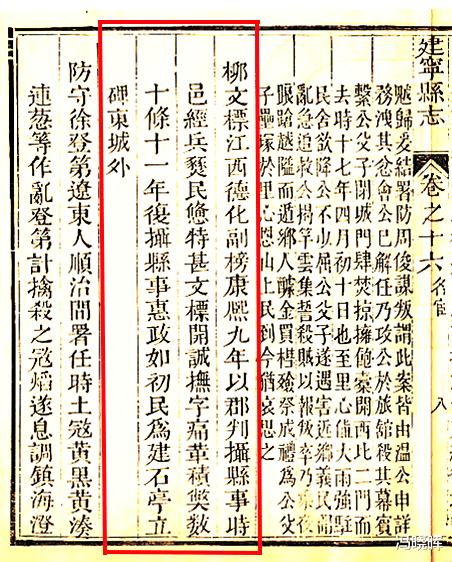 建寧縣志 卷之十六 名宦 八
賊歸友結署防周俊謀叛謂此案皆由温公申詳
務洩其忿會公已解任乃攻公於旅館殺其幕賓
繫公父子閉城門肆焚掠擁飽橐開西北二門而
去時十七年四月初十日也至里心値大雨強駐
民舍欲降公不少屈公父子遂遇害近鄉義民聞
亂急追救公揭竿雲集誓殺賊以報賊乃夜
踰越隘而遁鄉人醵金買棺殮祭成禮為公父
子壘塚於里心恩山上民到今猶哀思之
柳文標江西德化副榜康熙九年以郡判攝縣事時
邑經兵燹民憊特甚文標開誠撫字痛革積獘数
十條十一年復攝縣事惠政如初民為建石亭立
碑東城外
防守徐登第遼東人順治間署任時土冦黄黑黄湊
連葱等作亂登第計擒殺之冦熖遂息調鎮海澄
冯晓晖